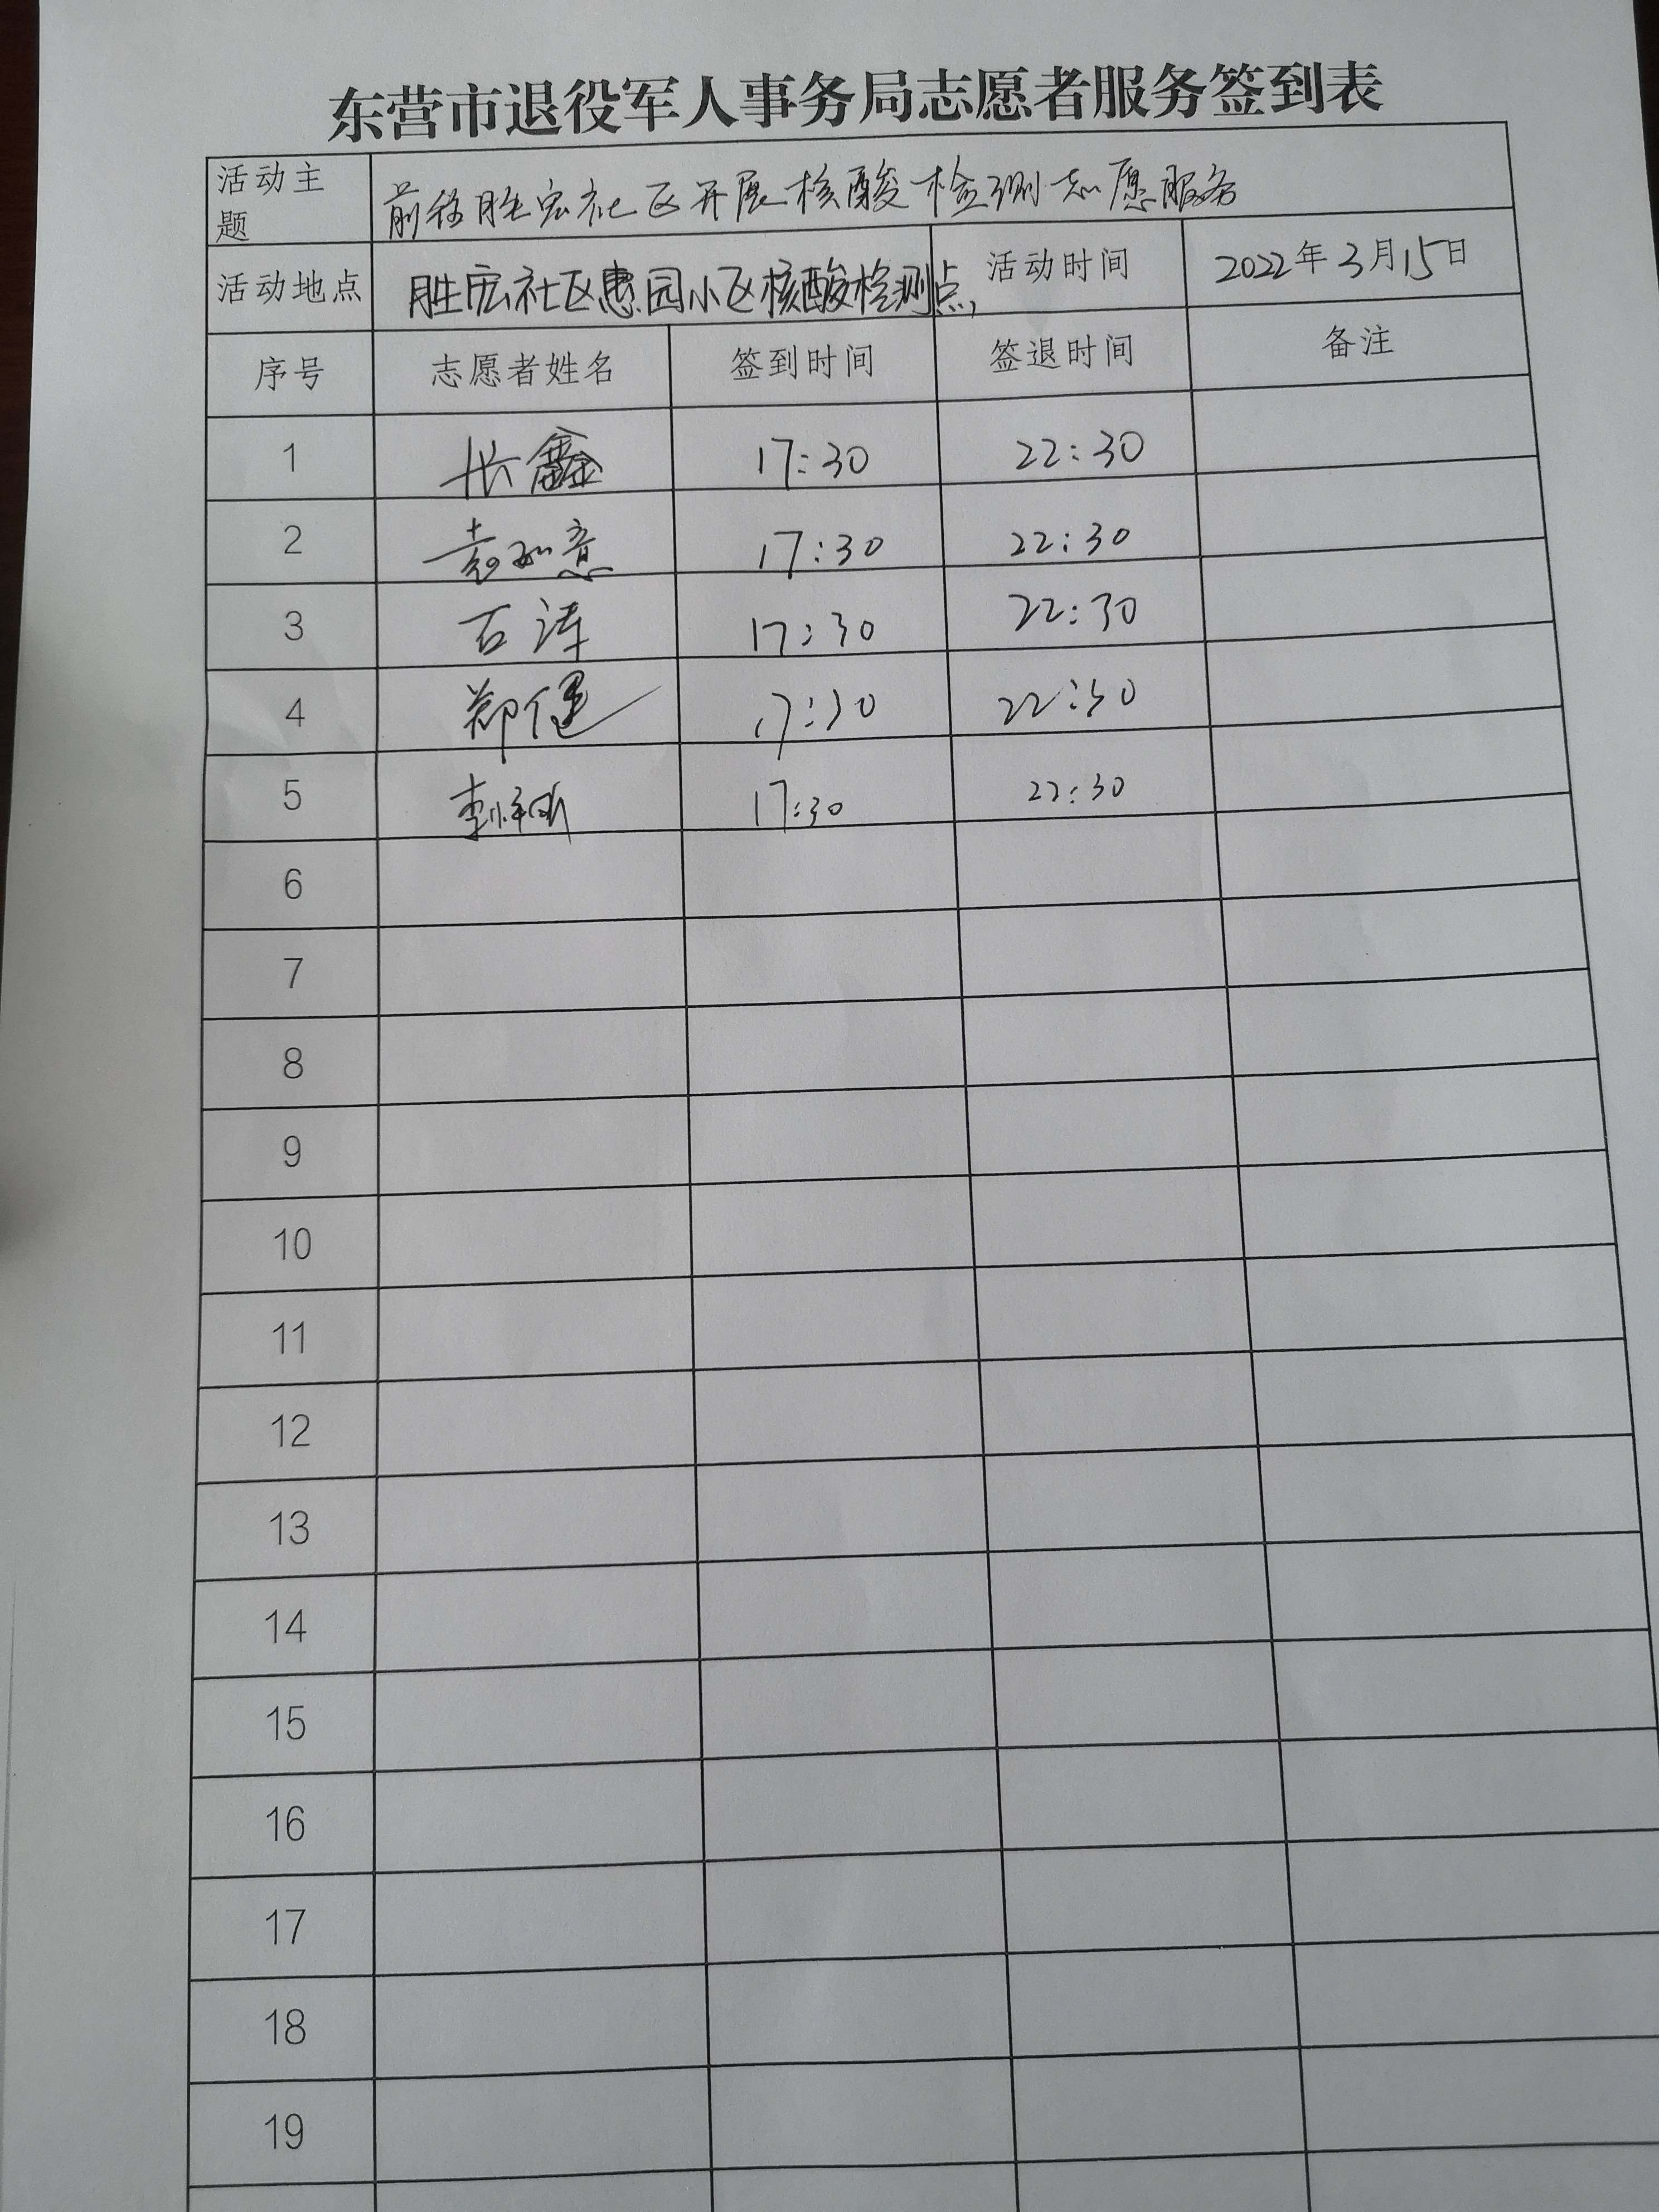 东营市退役军人事务局志愿者服务签到表
活动主题 前往胜宏社区开展核酸检测志愿服务
活动地点 胜宏社区惠园小区核酸检测点 活动时间 2022年3月15日
序号 志愿者姓名 签到时间 签退时间 备注
1 张鑫 17:30 22:30
2 袁如意 17:30 22:30
3 石涛 17:30 22:30
4 郑健 17:30 22:30
5 李 17:30 22:30
6
7
8
9
10
11
12
13
14
15
16
17
18
19